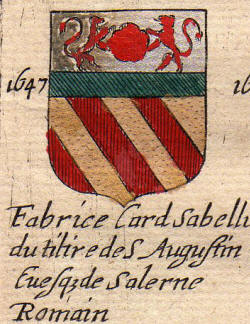 1647
Fabrice Card Sabellu
du tiltre de S Augustin
Euesq; de Salerne
Romain